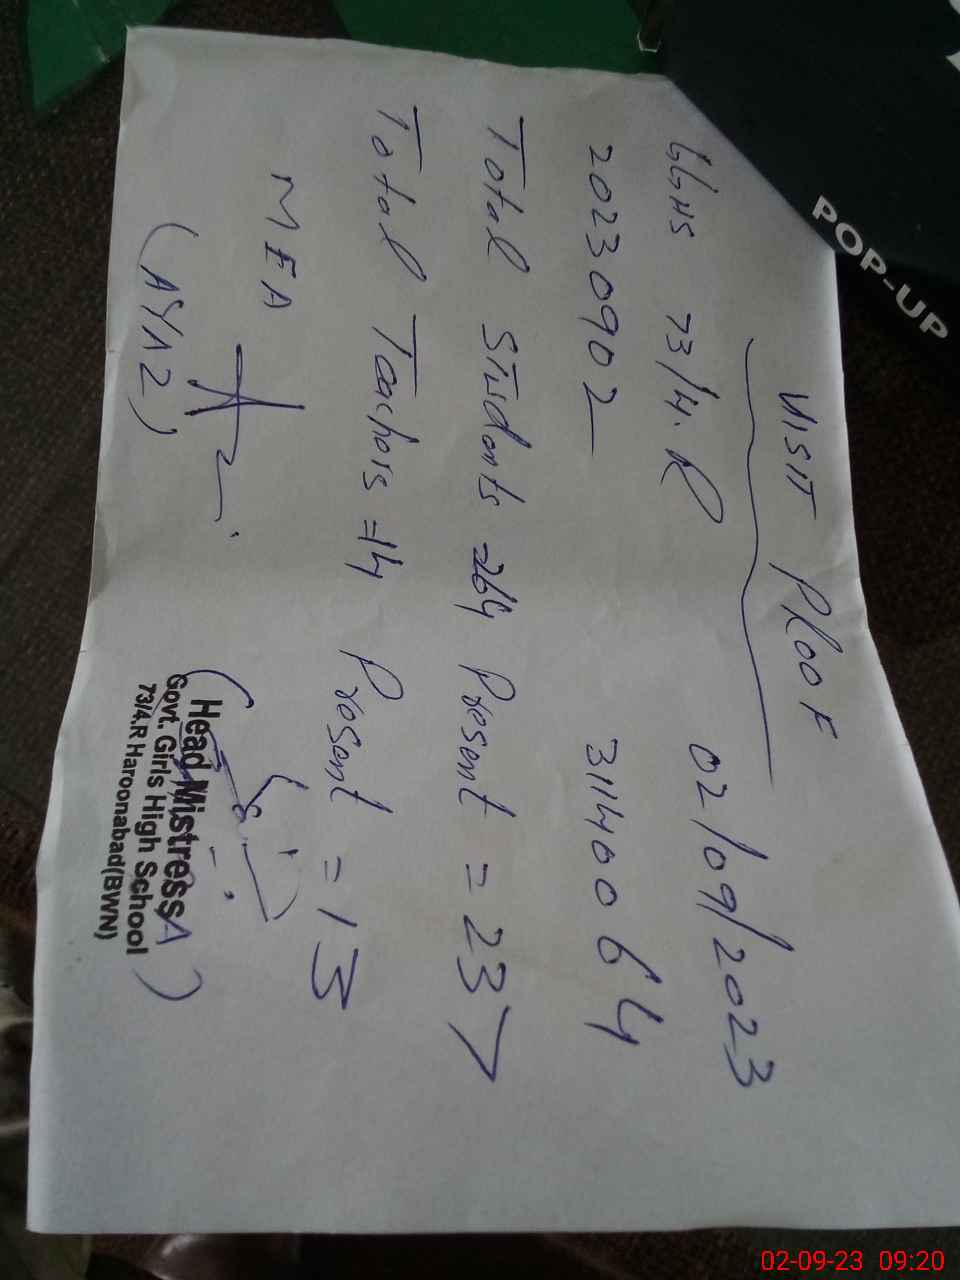 VISIT PROOF
GGHS 73/4.R 02/09/2023
20230902 31140064
Total Students = 264 Present = 237
Total Teachers = 14 Present = 13
MEA
(AYAZ)
Head Mistress
Govt. Girls High School
73/4.R Haroonabad(BWN)
POP-UP
02-09-23 09:20